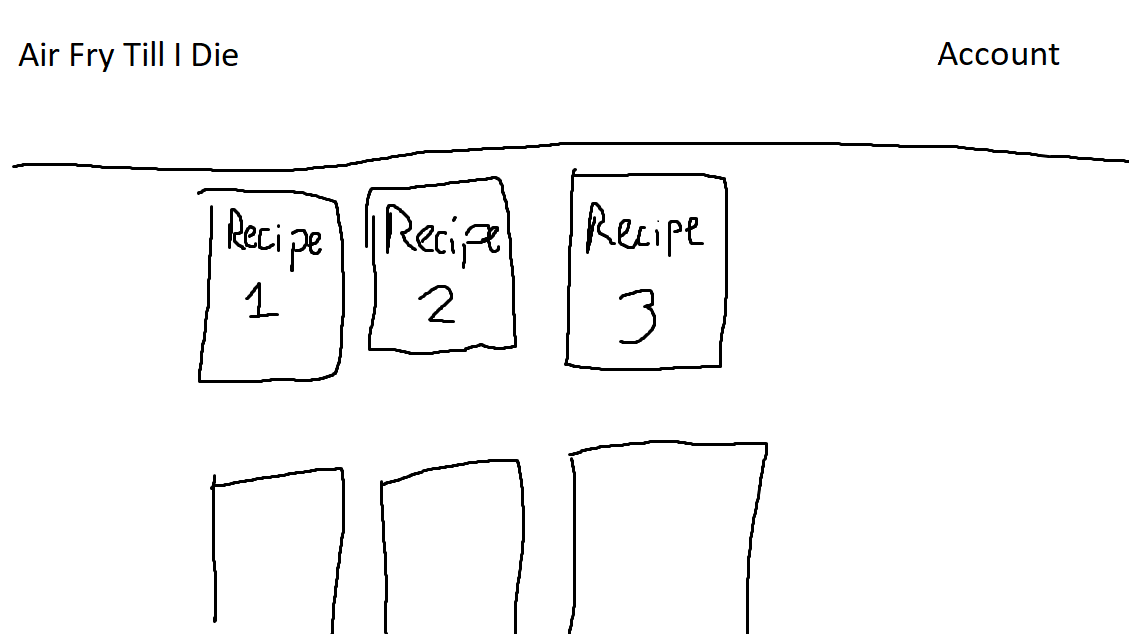 Air Fry Till I Die
Account
Recipe
1
Recipe
2
Recipe
3